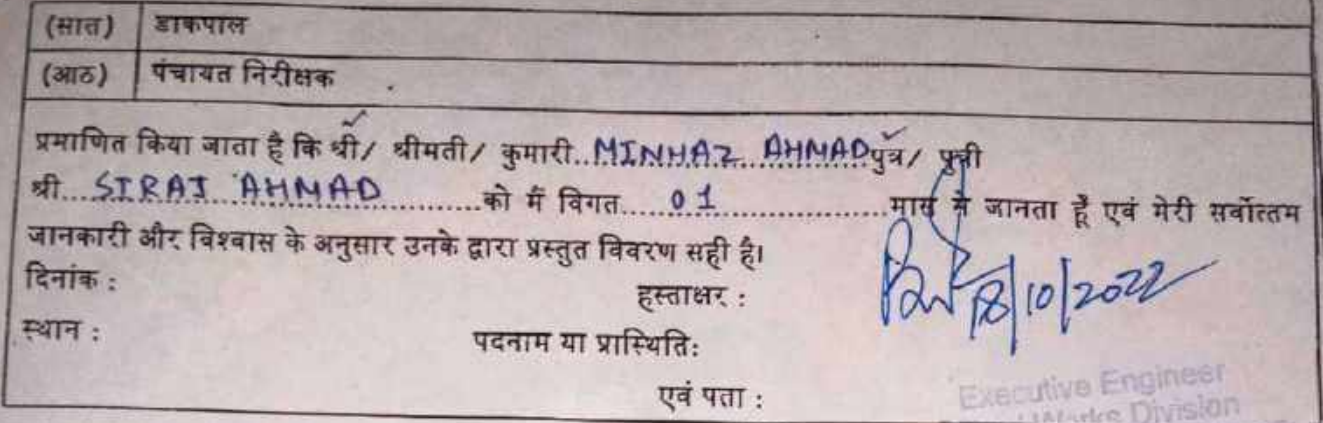 (सात) डाकपाल
(आठ) पंचायत निरीक्षक
प्रमाणित किया जाता है कि श्री/ श्रीमती/ कुमारी..MINHAZ AHMAD पुत्र/ पुत्री
श्री....SIRAJ AHMAD..........को मैं विगत......01......................मास से जानता हूँ एवं मेरी सर्वोत्तम
जानकारी और विश्वास के अनुसार उनके द्वारा प्रस्तुत विवरण सही है।
दिनांक : हस्ताक्षर : 18/10/2022
स्थान : पदनाम या प्रास्थितिः
एवं पता : Executive Engineer
Works Division